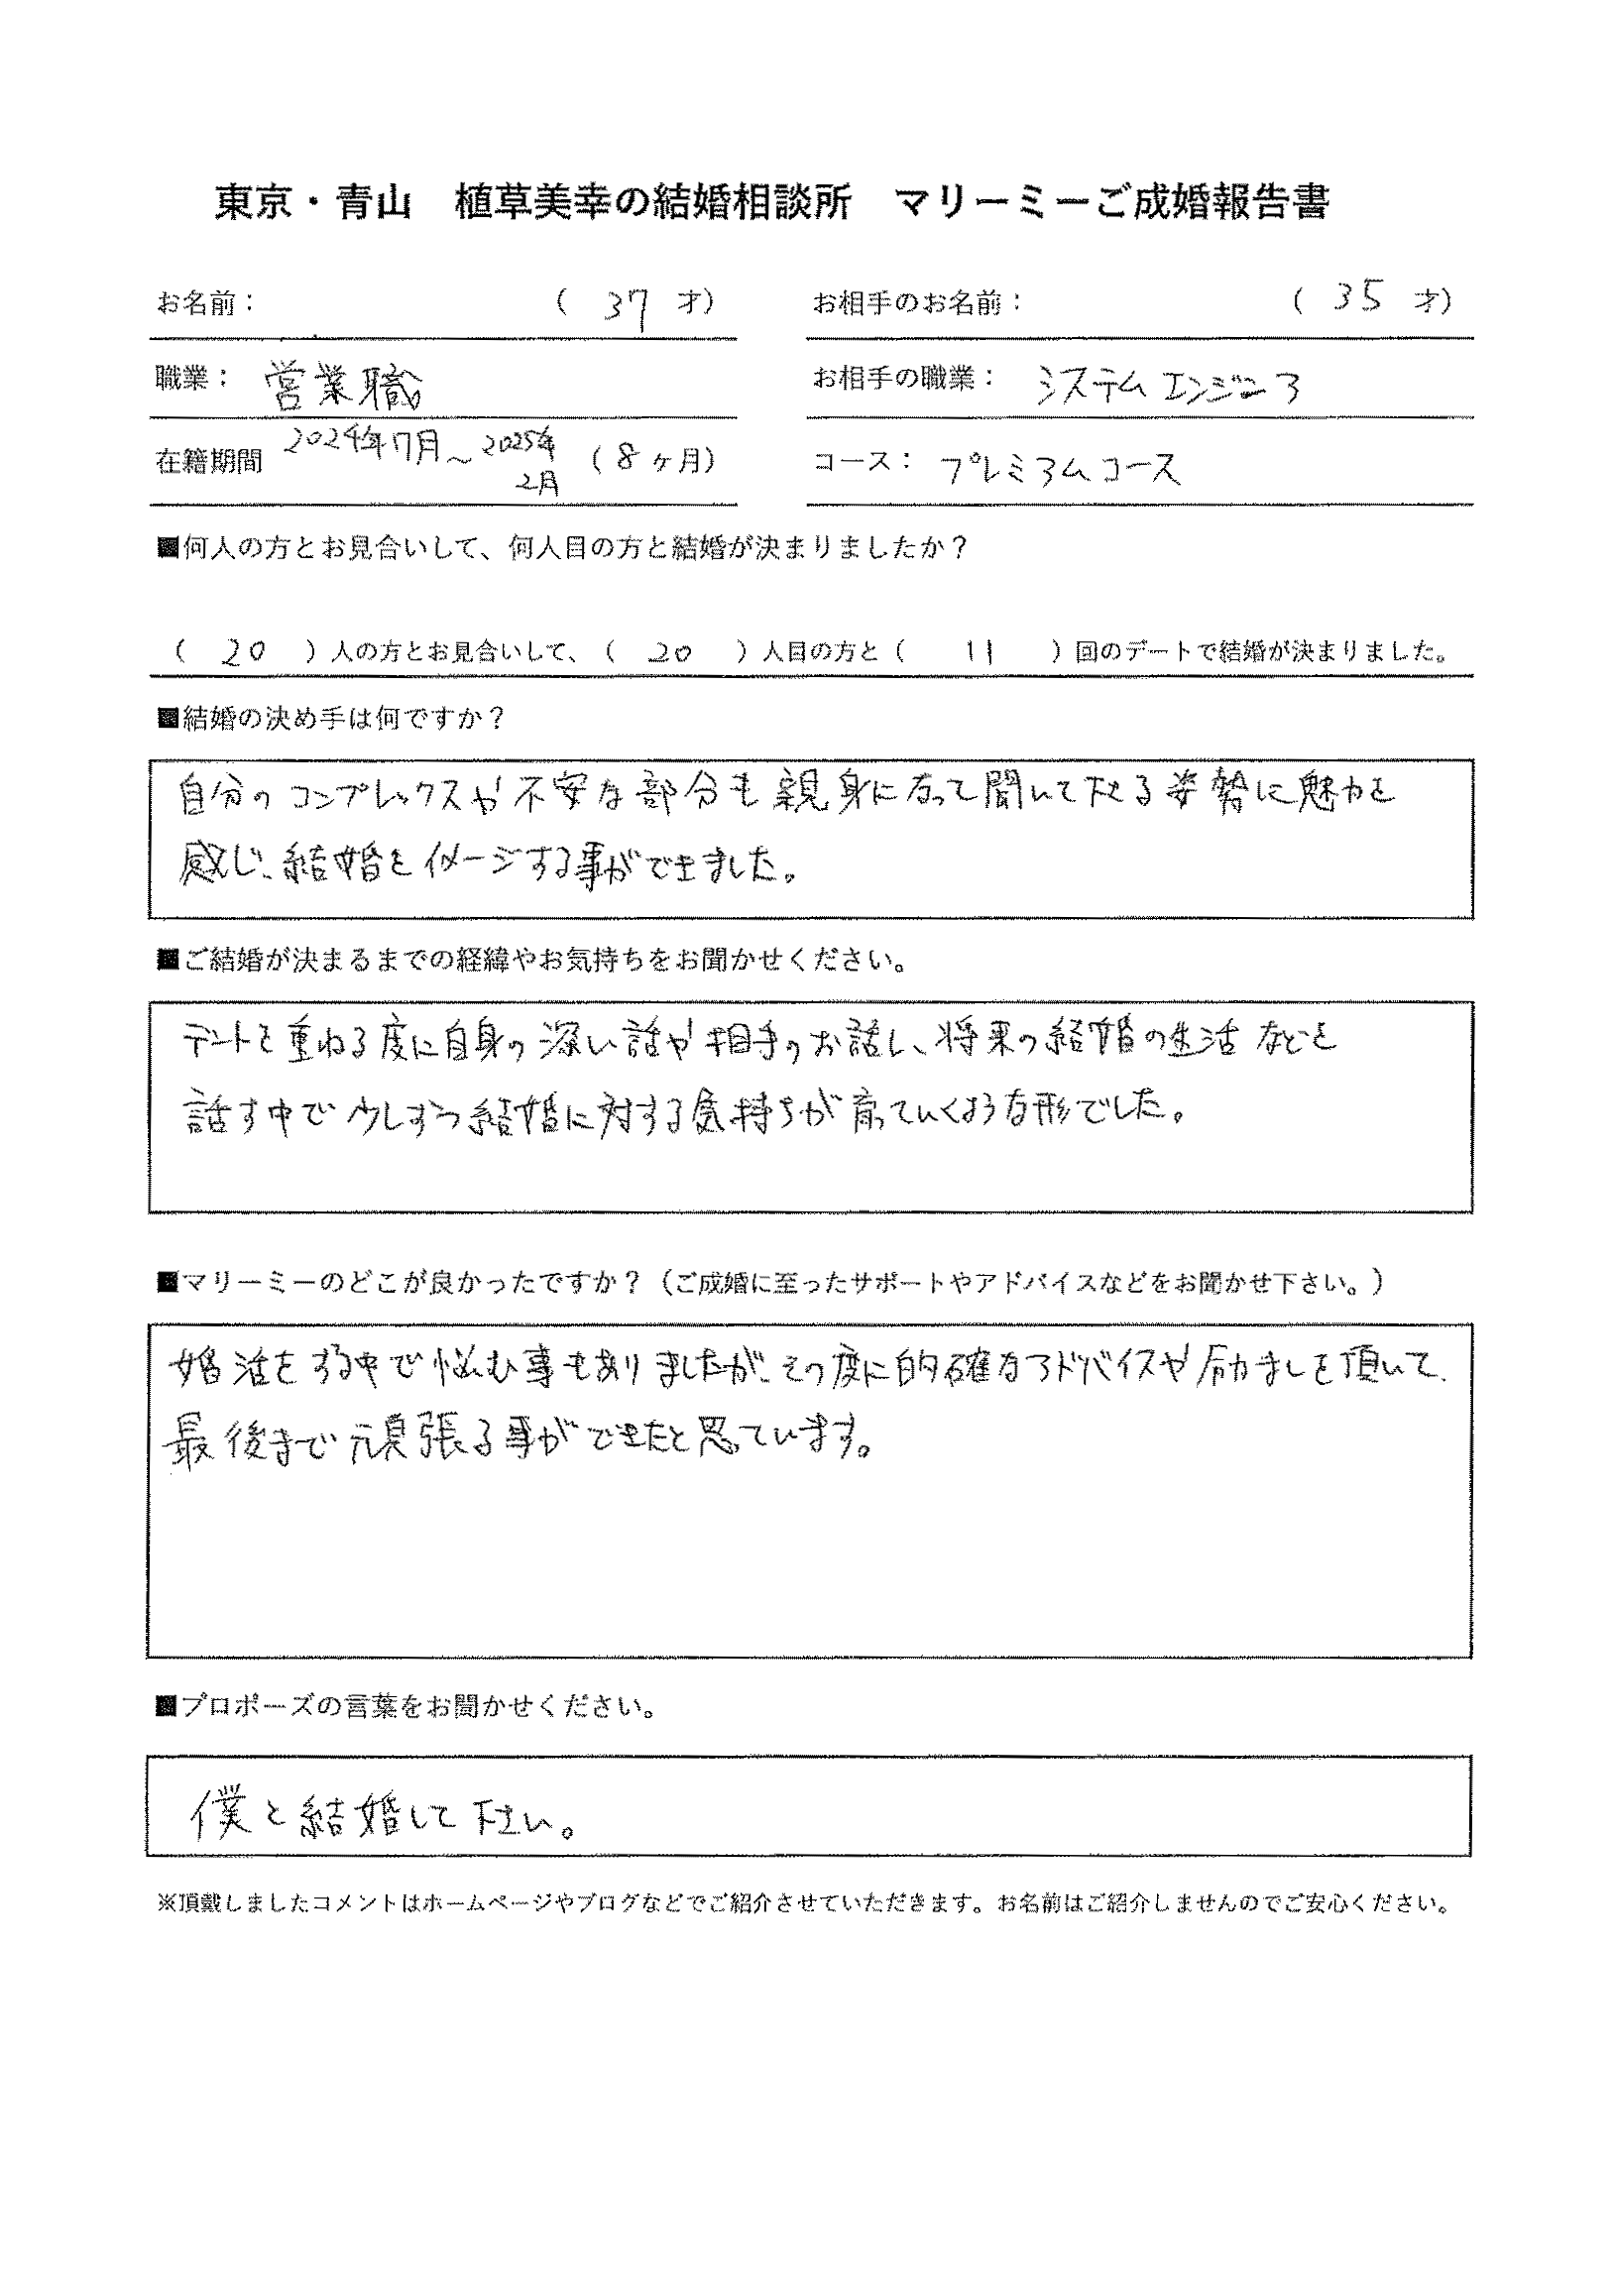 東京・青山　植草美幸の結婚相談所　マリーミーご成婚報告書
お名前：　（ 37 才）　お相手のお名前：　（ 35 才）
職業： 営業職　お相手の職業： システムエンジニア
在籍期間 2024年7月～2025年2月 （ 8 ヶ月）　コース： プレミアムコース
■何人の方とお見合いして、何人目の方と結婚が決まりましたか？
（ 20 ）人の方とお見合いして、（ 20 ）人目の方と（ 11 ）回のデートで結婚が決まりました。
■結婚の決め手は何ですか？
自分のコンプレックスや不安な部分も親身になって聞いて下さる姿勢に魅力を
感じ、結婚をイメージする事ができました。
■ご結婚が決まるまでの経緯やお気持ちをお聞かせください。
デートを重ねる度に自身の深い話や相手のお話し、将来の結婚の生活などを
話す中で少しずつ結婚に対する気持ちが育っていくような形でした。
■マリーミーのどこが良かったですか？（ご成婚に至ったサポートやアドバイスなどをお聞かせ下さい。）
婚活をする中で悩む事もありましたが、その度に的確なアドバイスや励ましを頂いて、
最後まで頑張る事ができたと思っています。
■プロポーズの言葉をお聞かせください。
僕と結婚して下さい。
※頂戴しましたコメントはホームページやブログなどでご紹介させていただきます。お名前はご紹介しませんのでご安心ください。